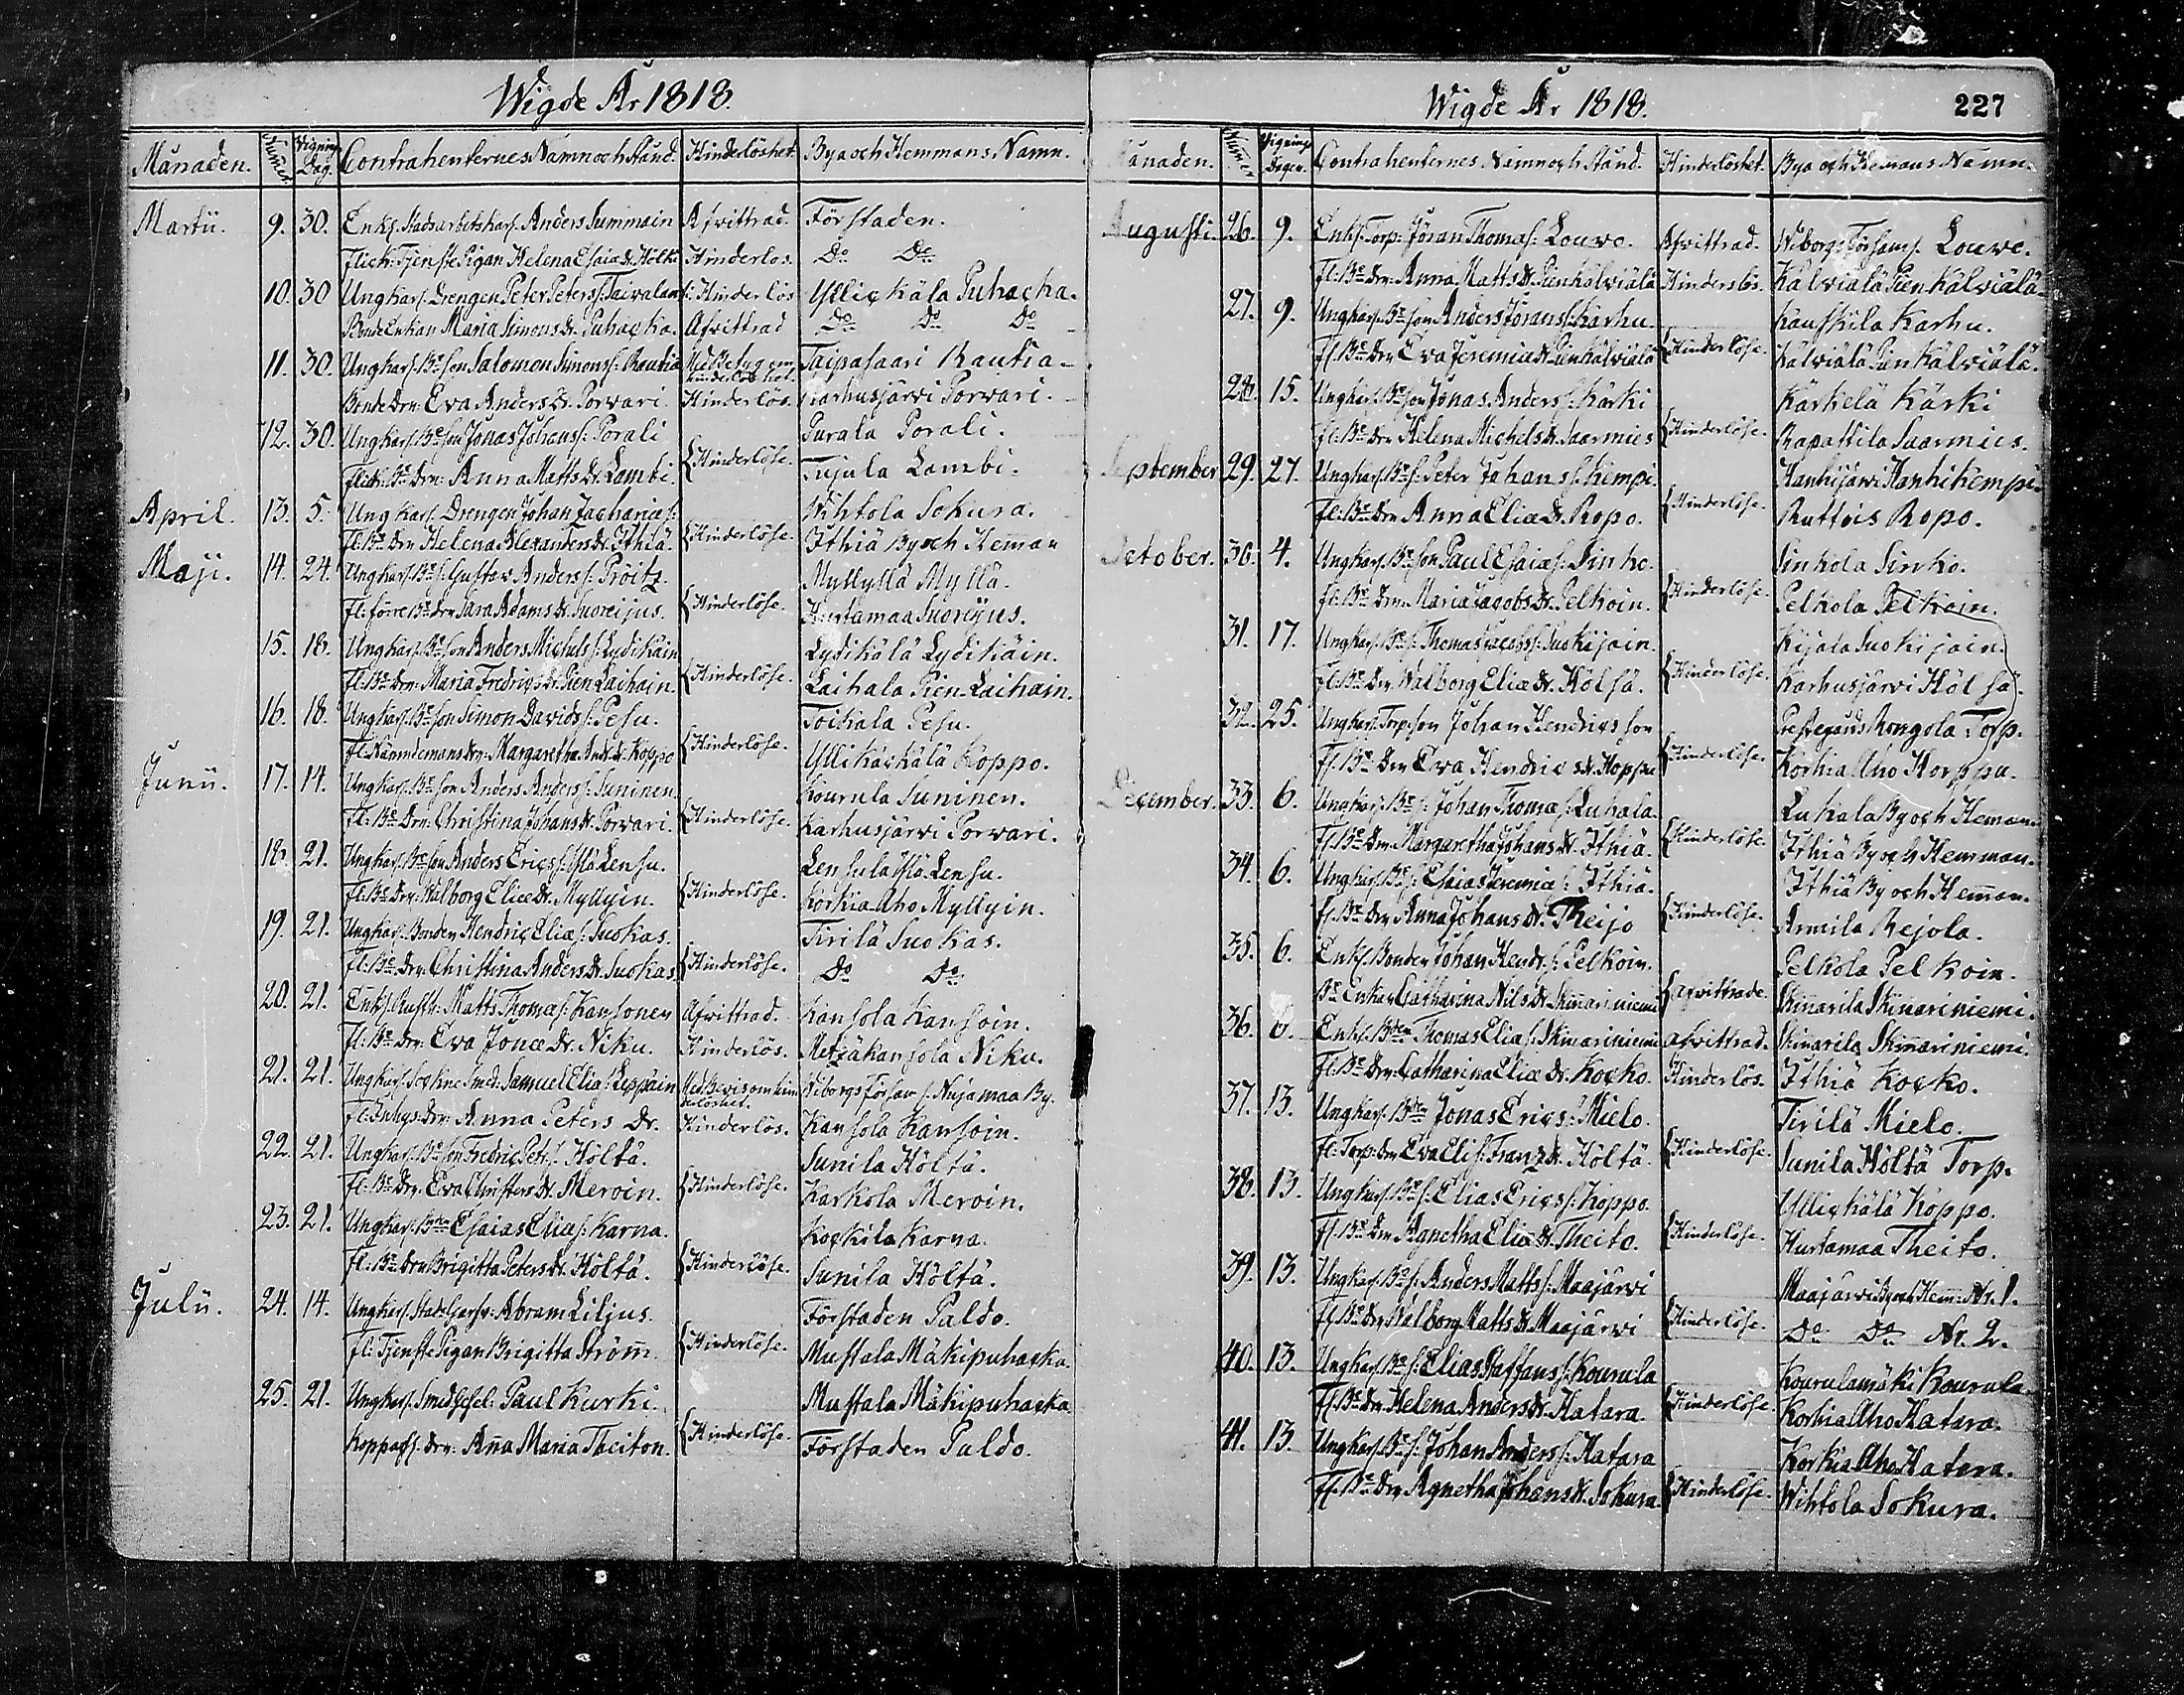 Wigde År 1818.
Månaden. Numer. Vignings Dag. Contrahenternes Namn och Stånd. Hinderlöshet. Bya och Hemmans Namn.
Martii. 9. 30. Enk. Stadsarbetskarl. Anders Summain Afvittrad. Förstaden.
Flick: Tjenste Pigan Helena Esaiæ Dr. Hölkä Hinderlös. Do Do
10. 30 Ungkarl. Drengen Peter Peters s. Taivalain Hinderlös Yllickälä Puhacka.
Bonde Enkan Maria Simons Dr. Puhacka. Afvittrad Do Do Do
11. 30. Ungkarl. Bde son Salomon Simons s: Rautia Med Betyg om hinderlöshet. Taipasaari Rautia
Bonde Drn: Eva Anders Dr. Porvari. Hinderlös. Karhusjärvi Porwari.
12. 30. Ungkarl. Bde son Jonas Johans s: Porali Parala Porali.
Flick: Bde Drn: Anna Matts Dr. Lambi. {Hinderlöse. Tujula Lambi.
April. 13. 5. Ungkarl. Drengen Johan Zachariæ s: Wihtola Sokura.
Fl: Bde Drn Helena Alexanders Dr. Ithiä. {Hinderlöse. Ithiä By och Heman
Maji. 14. 24. Ungkarl. Bde s: Gustav Anders s: Pröitz. Myllylä Myllä.
Fl: förre Bde drn Sara Adams Dr. Suoreijus. {Hinderlöse. Hurtamaa Suoreijus.
15. 18. Ungkarl. Bde son Anders Michels s: Lydikäin Lydikälä Lydikäin.
Fl: Bde Drn: Maria Fredrics Dr. Pien Laihain. {Hinderlöse. Laihala Pien-Laihain.
16. 18. Ungkarl. Bde son Simon Davids s: Pesu. Toikala Pesu.
Fl: Nämndemans drn: Margaretha And. dr. Koppo {Hinderlöse. Yllikäskälä Koppo.
Junii. 17. 14. Ungkarl. Bde son Anders Anders s: Suninen. Kourula Suninen.
Fl: Bde Drn: Christina Johans dr. Porwari. {Hinderlöse. Karhusjärvi Porwari.
18. 21. Ungkarl. Bde son Anders Erics s: Ylä Lensu. Lensula Ylä-Lensu.
Fl: Bde Drn: Walborg Eliæ Dr. Myllyin. {Hinderlöse. Korkia Aho Myllyin.
19. 21. Ungkarl. Bonden Hendric Eliæ s: Suokas. Tirilä Suokas.
Fl: Bde Drn: Christina Anders Dr. Suokas {Hinderlöse. Do Do
20. 21. Enk. Matts Thomæ s: Kansonen Afvittrad. Kansola Kansoin.
Fl: Bde Drn: Eva Jonæ Dr. Niku. Hinderlös. Metzäkansola Niku.
21. 21. Ungkarl. Sockne Smed: Samuel Eliæ s: Leppäin Med Bevis om hinderlöshet. Wiborgs Förs: Nujamaa By.
Fl: Inhys. Drn: Anna Peters Dr. Hinderlös. Kansola Kansoin.
22. 21. Ungkarl. Bde son Fredric Petr. s: Höltä. Sunila Höltä.
Fl: Bde Drn. Eva Christers Dr. Meroin. {Hinderlöse. Karkola Meroin.
23. 21. Ungkarl. Bden Esaias Eliæ s: Karna. Kockila Karna.
Fl: Bde Drn Brigitta Peters Dr. Höltä. {Hinderlöse. Sunila Höltä.
Julii. 24. 14. Ungkarl. Stads Abram Liljus. Förstaden Paldo.
Fl: Tjenste Pigan Brigitta Ström. {Hinderlöse. Mustala Mäkipuhacka.
25. 21. Ungkarl. Smeds Gesel: Paul Kurki. Mustala Mäkipuhacka.
Drn: Anna Maria Theiton. {Hinderlöse. Förstaden Paldo.
Wigde År 1818. 227
Månaden. Numer Vignings Dagen. Contrahenternes Namn och Stånd. Hinderlöshet. Bya och Hemans Namn.
Augusti. 26. 9. Enk. Torp: Jöran Thomæ s: Louwe. Afvittrad. Wiborgs Församl. Louwe.
Fl: Bde Drn: Anna Matts Dr. Pienkälviälä Hinderlös. Kälviälä Pien Kälviälä.
27. 9. Ungkarl. Bde son Anders Jörans s: Karhu. Kauskila Karhu.
Fl: Bde Drn Eva Jeremiæ Dr. Pienkälviälä {Hinderlöse. Kälviälä Pien Kälviälä.
28. 15. Ungkarl. Bde son Jonas Anders s: Kärki Kärkelä Kärki
Fl: Bde Drn Helena Michels Dr. Saarmies {Hinderlöse. Rapattila Saarmies.
September 29. 27. Ungkarl. Bde s: Peter Johans s: Kempi. Hanhijärvi Hanhikempi.
Fl: Bde Drn Anna Eliæ Dr. Ropo. {Hinderlöse. Ruttois Ropo.
October. 30. 4. Ungkarl. Bde son Paul Esaiæ s: Sinko. Sinkola Sinko.
Fl: Bde Drn: Maria Jacobs Dr. Pelkoin. {Hinderlöse. Pelkola Pelkoin.
31. 17. Ungkarl. Bde s: Thomas Jacobs s: Suokijoin. Kijala Suokijoin.
Fl: Bde Drn Walborg Eliæ Dr. Hölsä. {Hinderlöse. Karhusjärvi Hölsä.
32. 25. Ungkarl. Torp. son Johan Hendrics son Prestegårds Rongola Torp.
Fl: Bde Drn Eva Hendrics dr. Hoppu {Hinderlöse. Korkia Aho Horppu.
December. 33. 6. Ungkarl. Bde s: Johan Thomæ s: Luhala. Luhala By och Heman.
Fl: Bde Drn. Margaretha Johans dr. Ithiä. {Hinderlöse. Ithiä By och Hemman.
34. 6. Ungkarl. Bde s: Esaias Jeremiæ s: Ithiä. Ithiä By och Heman.
Fl: Bde Drn Anna Johans dr. Theijo {Hinderlöse. Armila Rejola.
35. 6. Enk. Bonden Johan Hendr. s: Pelkoin. Pelkola Pelkoin.
Bde Enkan Catharina Nils Dr. Skinnariniemi {Afvittrade. Skinnarila Skinnariniemi.
36. 6. Enk. Bden Thomas Eliæ s: Skinnariniemi Afvittrad. Skinnarila Skinnariniemi.
Fl: Bde Drn: Catharina Eliæ Dr. Kocko. Hinderlös. Ithiä Kocko.
37. 13. Ungkarl. Bden Jonas Erics s: Mielo. Tirilä Mielo.
Fl: Torp: Drn Eva Franz Dr. Höltä. {Hinderlöse. Sunila Höltä Torp.
38. 13. Ungkarl. Bde s: Elias Erics s: Koppo. Yllickälä Koppo.
Fl: Bde Drn Agnetha Eliæ Dr. Theito. {Hinderlöse. Hurtamaa Theito.
39. 13. Ungkarl. Bde s: Anders Matts s: Maajärvi Maajärvi By och Hem: Nr. 1.
Fl: Bde Drn Walborg Matts Dr. Maajärvi {Hinderlöse. Do Do Nr. 2.
40. 13. Ungkarl. Bde s: Elias Staffans s: Kourula Kourulamäki Kourula
Fl: Bde Drn Helena Anders dr. Hatara. {Hinderlöse. Korkia Aho Hatara.
41. 13. Ungkarl. Bde s: Johan Anders s: Hatara Korkia Aho Hatara.
Fl: Bde Drn Agnetha Johans dr. Sokura. {Hinderlöse. Wihtola Sokura.